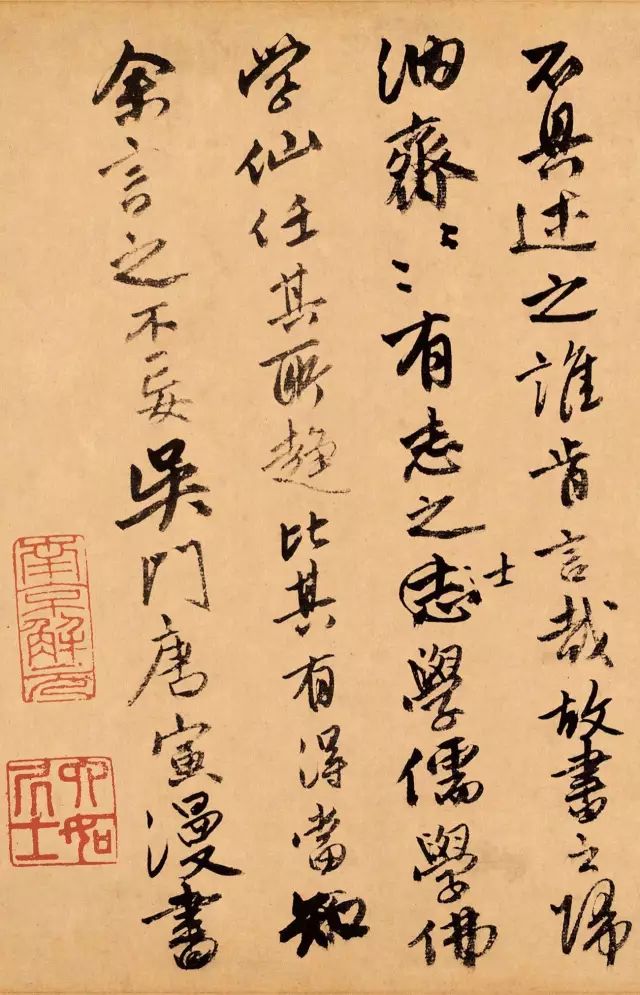 不具述之誰肯言哉故書之歸
納齋〻〻有志之志士學儒學佛
学仙任其所趨比其有得當知
余言之不妄吳門唐寅漫書
南京解元
六如居士